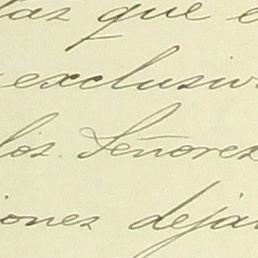 las que e
exclusiv
los. Señores
iones dejar